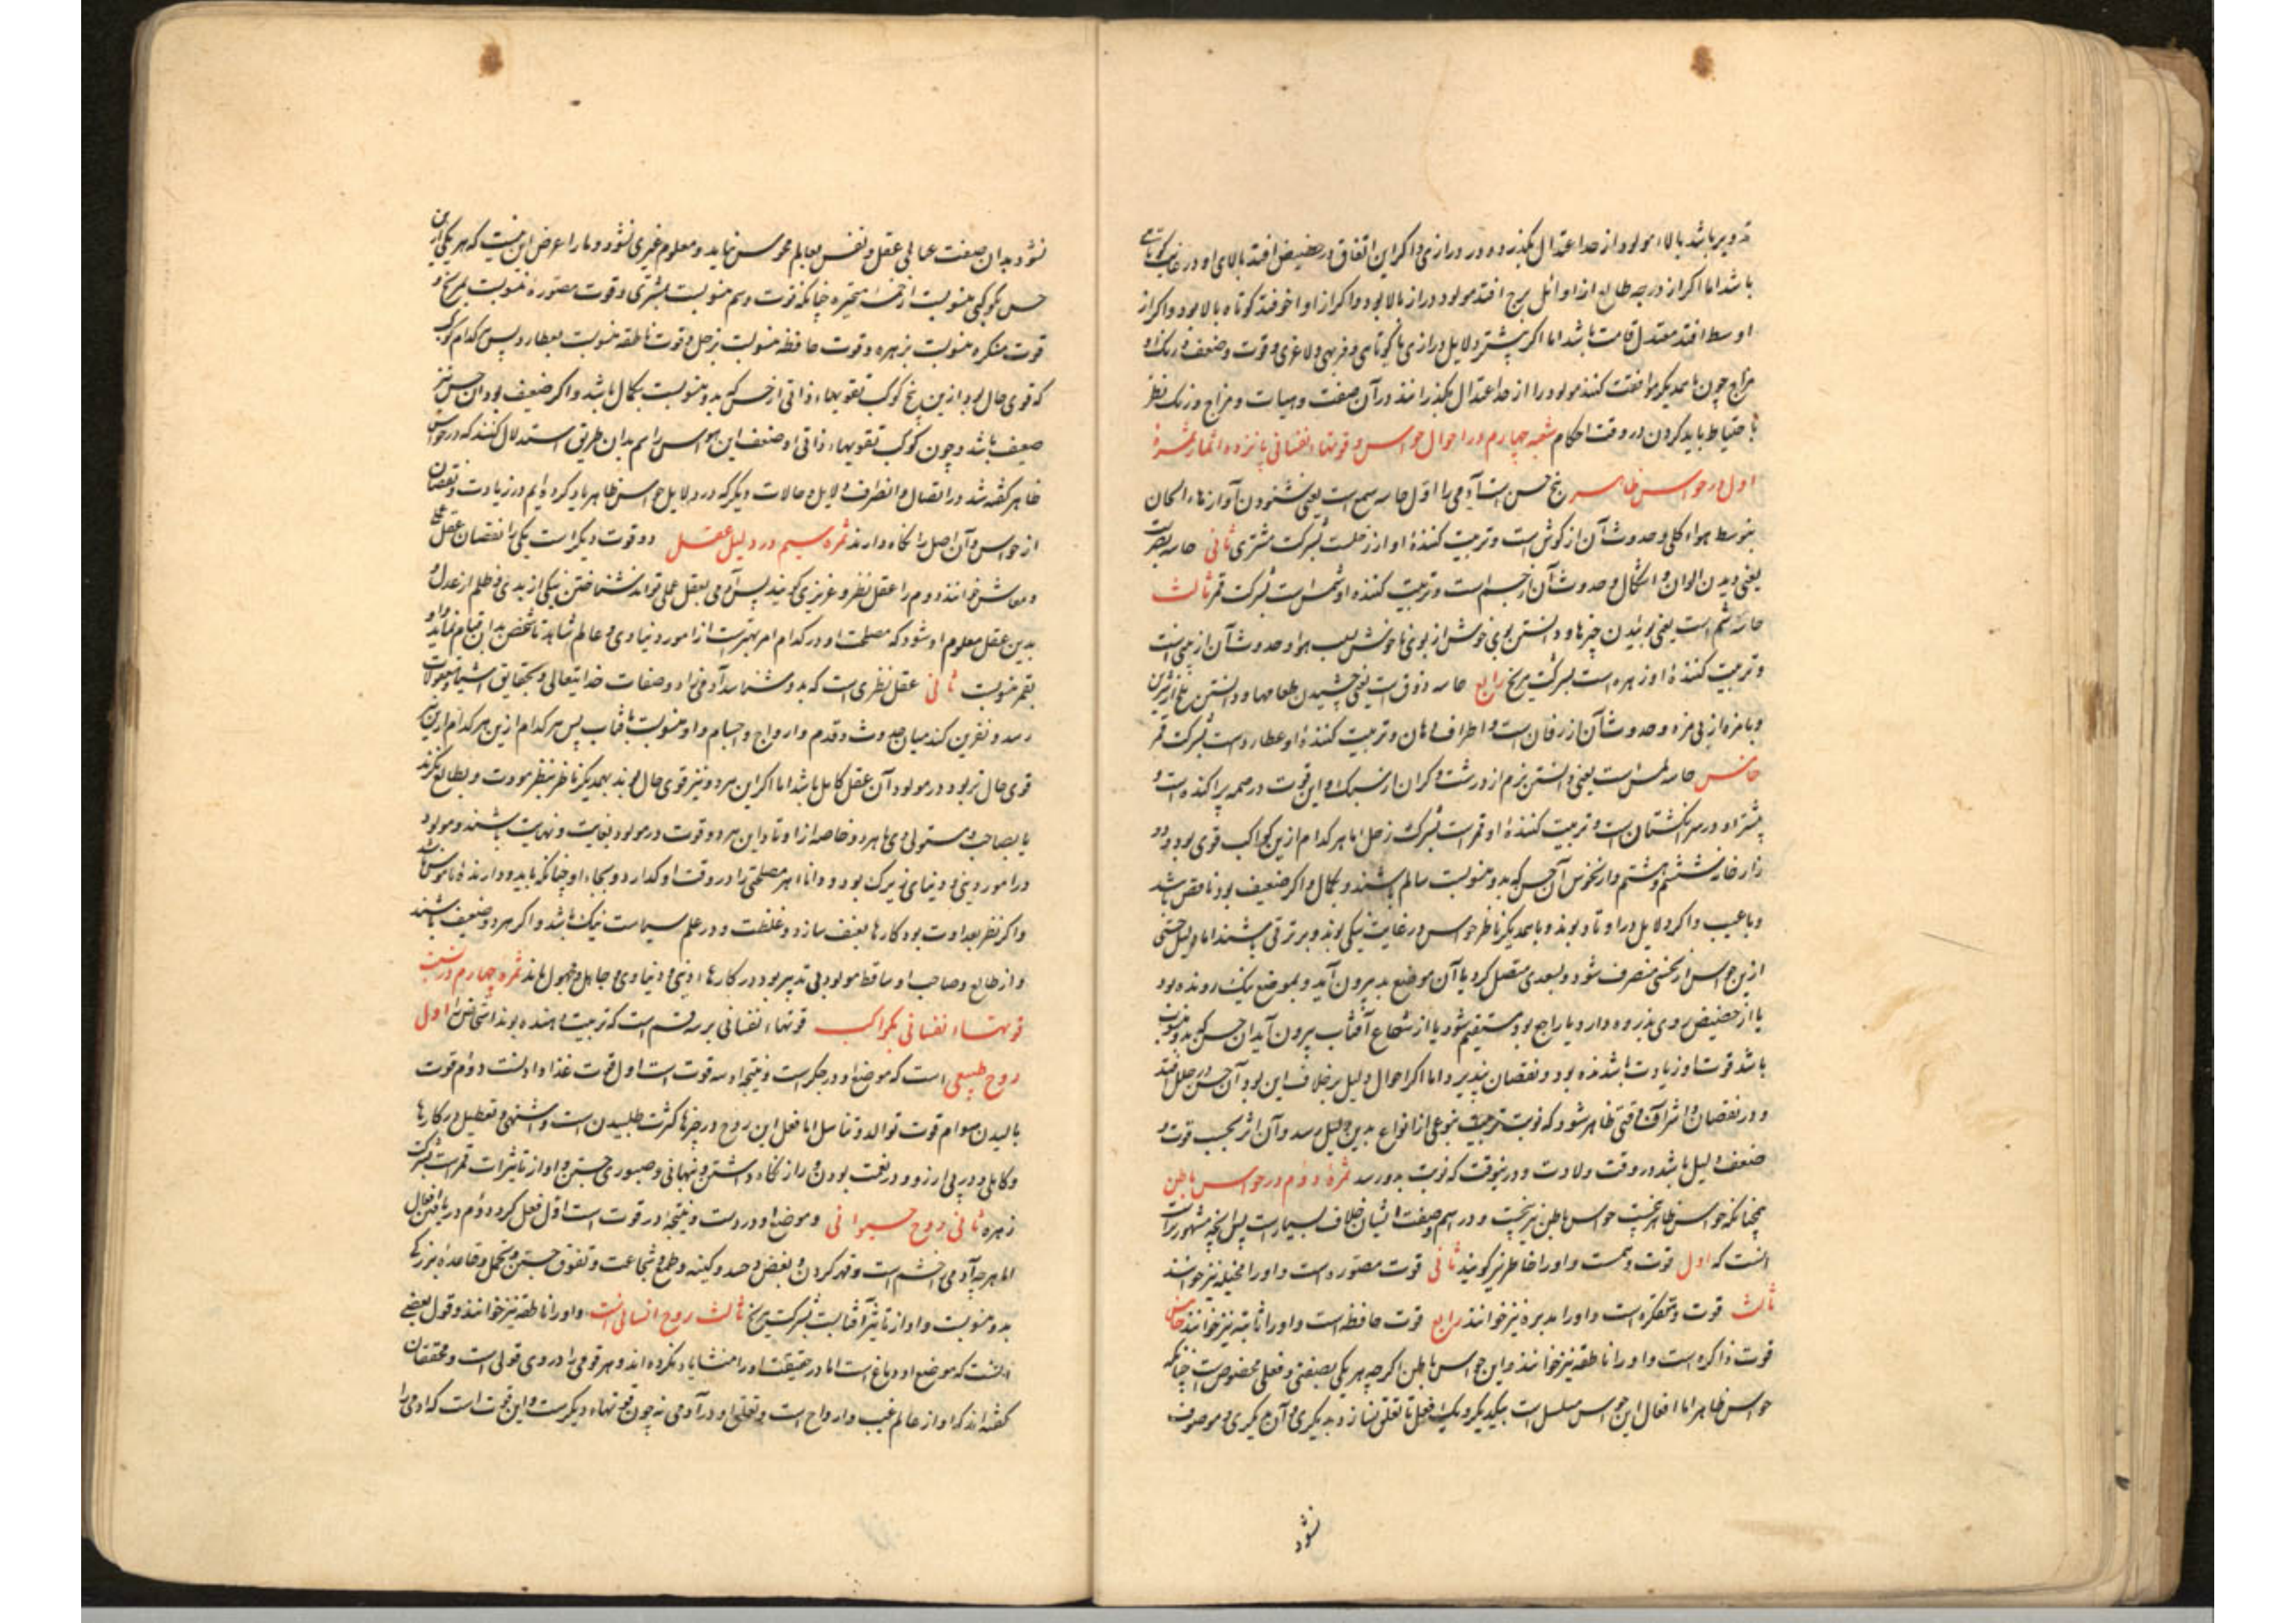 تدویر باشد بالاء مولود از حد اعتدال بگذرد و در درازی و اگر این اتفاق در حضیض افتد بالای او در غایت کوتاهی
باشد اما اگر از درجه طالع از اوائل برج افتد مولود دراز بالا بود و اگر از اواخر افتد کوتاه بالا بود و اگر از
اوسط افتد معتدل قامت باشد اما اگر بیشتر دلایل درازی یا کوتاهی و فربهی و لاغری و قوت و ضعف و رنگ و
مزاج چون با همدیگر موافقت کنند مولود را از حد اعتدال بگذرانند در آن صفت و هیات و مزاج و رنگ نظر
با حتیاط باید کردن در وقت احکام شعبه چهارم در احوال حواس و قوتهاء نفسانی پانزده اثمار ثمرۀ
اول در حواس ظاهر پنج حس است آدمی را اول حاسه سمع است یعنی شنودن آوازها و الحان
بتوسط هواء کلی و حدوث آن از گوش است و تربیت کنندۀ او از زحلست بشرکت مشتری ثانی حاسه بصرست
یعنی دیدن الوان و اشکال و حدوث آن از چشم است و تربیت کننده او شمس است بشرکت قمر ثالث
حاسه شم است یعنی بوئیدن چیزها و دانستن بوی خوش از بوی ناخوش بسبب هوا و حدوث آن از بینی است
و تربیت کنندۀ او زهره است بشرکت مریخ رابع حاسه ذوق است یعنی چشیدن طعامها و دانستن تلخ از شیرین
و بامزه از بی مزه و حدوث آن از زفان است و اطراف دهان و تربیت کنندۀ او عطاردست بشرکت قمر
خامس حاسه لمس است یعنی دانستن نرم از درشت و گران از سبک و این قوت در همه پراکنده است و
بیشتر او در سر انگشتان است و تربیت کنندۀ او قمر است بشرکت زحل اما هر کدام ازین کواکب قوی بود و دور
از خانه ششم و هشتم و از نحوس آن حس که بدو منسوبست سالم باشند و بکمال و اگر ضعیف بود ناقص باشد
و با عیب و اگر دلایل در اوتاد بوند و با همدیگر ناظر حواس در غایت نیکی بوند و بر ترقی باشند اما دلیل حسی
ازین حواس از نحسی منصرف شود و بسعدی متصل گردد یا آن موضع بد بیرون آید و بموضع نیک رونده بود
یا از حضیض روی بذروه دارد یا راجع بود مستقیم شود یا از شعاع آفتاب بیرون آید آن حس که بدو منسوب
باشد قوت او زیادت باشنده بود و نقصان نپذیرد اما اگر احوال دلیل بر خلاف این بود آن حس در خلل افتد
و در نقصان و اثر آن وقتی ظاهر شود که نوبت تربیت بنوعی از انواع بدین دلیل رسد و آن اثر بحسب قوت و
ضعف دلیل باشد در وقت ولادت و در نوقت که نوبت بدو رسد ثمرۀ دوم در حواس باطن
همچنانکه حواس ظاهر پنجست حواس باطن نیز پنجست و در اسم و صفت ایشان خلاف بسیار است پس آنچه مشهورترست
آنست که اول قوت وهمست و او را خاطر نیز گویند ثانی قوت مصوره است و او را مخیله نیز خوانند
ثالث قوت متفکره است و او را مدبره نیز خوانند رابع قوت حافظه است و او را ثابته نیز خوانند خامس
قوت ذاکره است و او را ناطقه نیز خوانند و این حواس باطن اگر چه هر یکی بصفتی و فعلی مخصوص است چنانکه
حواس ظاهر اما افعال این حواس مسلسل است بیکدیگر و یک فعل تا تعلق نسازد بدیگری و آن دیگری موصوف
نشود
نشود بدان صفت عمل عقل و نفس بعالم محسوس نیاید و معلوم غیری نشود و ما را غرض این نیست که هر یکی ازین
حس بکوکبی منسوبست از خمسه متحیره چنانکه قوت وهم منسوبست بمشتری و قوت مصوره منسوبست بمریخ و
قوت متفکره منسوبست بزهره و قوت حافظه منسوبست بزحل و قوت ناطقه منسوبست بعطارد پس کدام کوکب
که قوی حال بود ازین پنج کوکب بقوتهاء ذاتی آن حس که بدو منسوبست بکمال باشد و اگر ضعیف بود آن حس نیز
ضعیف باشد و چون کوکب بقوتهاء ذاتی او ضعف این حواس را هم بدان طریق استدلال کنند که در حواس
ظاهر گفته شد در اتصال و انصراف دلایل و حالات دیگر که در دلایل حواس ظاهر یاد کرده ایم در زیادت و نقصان
از حواس و آن اصل را نگاه دارند ثمره سیم در دلیل عقل دو قوت دیگر است یکی را نقصان عقل عملی
و معاش خوانند دوم را عقل نظر و غریزی گویند پس آدمی بعقل عملی تواند شناختن نیکی از بدی و ظلم از عدل و
بدین عقل معلوم او شود که مصلحت او در کدام امر بهترست از امور دنیاوی و عالم شاهد تا شخص بدان قیام نماید و او
بقمر منسوبست ثانی عقل نظری است که بدو شناسد آدمی ذات و صفات خدایتعالی و بحقایق اشیا و معقولات
رسد و تفرق کند میان حدوث و قدم و ارواح و اجسام و او منسوبست بآفتاب پس هر کدام ازین هر کدام ازین نیر
قوی حال تر بود در مولود آن عقل کامل باشد اما اگر این هر دو نیز قوی حال بوند بهمدیگر ناظر بنظر مودت و بطالع نگرند
یا بصاحب و مستولی یا هر دو خاصه از اوتاد این هر دو قوت در مولود بغایت و نهایت باشند و مولود
در امور دینی و دنیاوی زیرک بود و دانا و هر مصلحتی را در وقت او گذارد و بجاء او چنانکه باید و دارنده ناموس باشد
و اگر نظر بعداوت بود کارها بعنف سازد و غلظت و در علم سیاست نیک باشد و اگر هر دو ضعیف باشند
و از طالع و صاحب او ساقط مولود بی تدبیر بود در کارها دینی و دنیاوی و جاهل و مجهول ماند ثمره چهارم در نسبت
قوتهاء نفسانی بکواکب قوتهاء نفسانی بر سه قسم است که تربیت دهنده بوند اشخاص را اول
روح طبیعی است که موضع او در جگر است و نتیجه او سه قوت است اول قوت غذا دادنست دوم قوت
بالیدن سوم قوت توالد و تناسل اما فعل این روح در چیزها کثرت طلبیدن است و اشتهی و تعطیل در کارها
و کاهلی و در پی آرزو و در رفعت بودن و راز نگاه داشتن و نهانی و صبوری جستن و او از تاثیرات قمر است بشرکت
زهره ثانی روح حیوانی و موضع او در دلست و نتیجه او دو قوت است اول فعل کردن دوم دریافتن افعال
اما هر چه آدمی را خشم است و قهر کردن و بغض و حسد و کینه و طمع و شجاعت و تفوق جستن و تحمل و قاعده بزرگی
بدو منسوبست و او از تاثیر آفتابست بشرکت مریخ ثالث روح انسانیست و او را ناطقه نیز خوانند و قول بعضی
آنست که موضع او دماغ است اما در حقیقت او را منشا یاد نکرده اند و هر قومی را در وی قولی است و محققان
گفته اند که او از عالم غیب و ارواح است و تعلق او در آدمی نه چون قوتهاء دیگرست و این قوت است که آدمی را